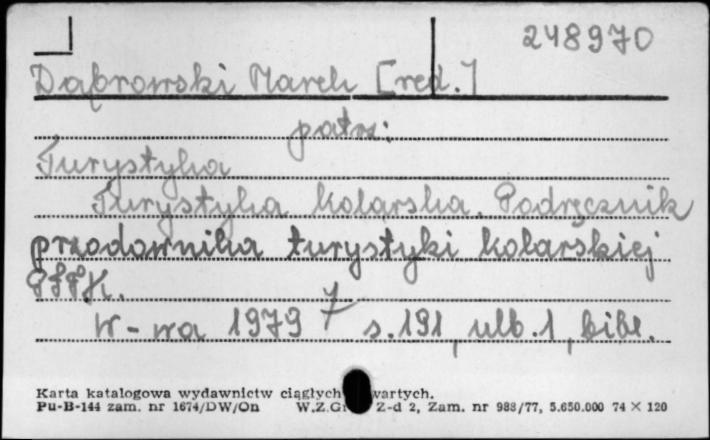 248970
Dąbrowski Marek [red.]
patrz:
Turystyka
Turystyka kolarska. Podręcznik
przodownika turystyki kolarskiej
PTTK.
W-wa 1979 s.191, ulb.1, bibl.
Karta katalogowa wydawnictw ciągłych wartych.
Pu-B-144 zam. nr 1674/DW/On W.Z.Gr Z-d 2, Zam. nr 988/77, 5.650.000 74 × 120